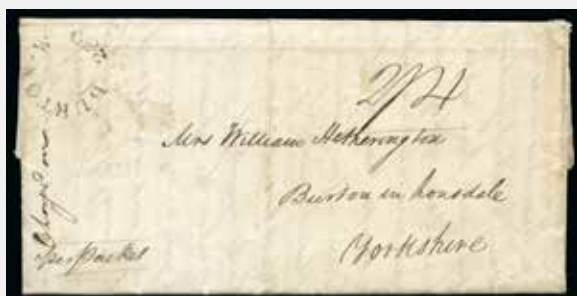 2/4
Mrs William Hetherington
Burton in Lonsdale
Yorkshire
per Packet